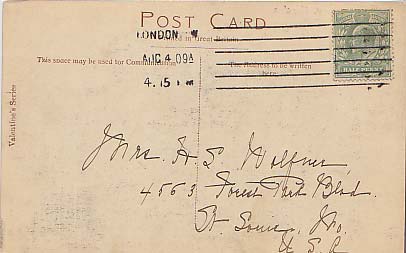 POST CARD
Printed in Great Britain
LONDON W
AUG 4 09
4.15 PM
This space may be used for Communication
The Address to be written
here
HALFPENNY
Valentine's Series
Mrs. A. S. Wolfner
4563 Forest Park Blvd.
St. Louis, Mo.
U S A